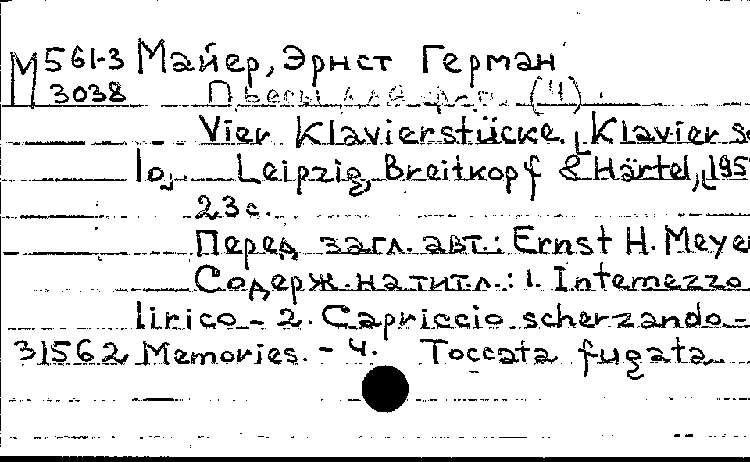 М 561-3 Майер, Эрнст Герман
3038 Пьесы для фп. (4).
Vier Klavierstücke. [Klavier so
lo]. Leipzig, Breitkopf & Härtel, [195
23 с.
Перед загл. авт.: Ernst H. Meye
Содерж. на тит. л.: 1. Intemezzo
lirico - 2. Capriccio scherzando -
31562 Memories. - 4. Toccata fugata